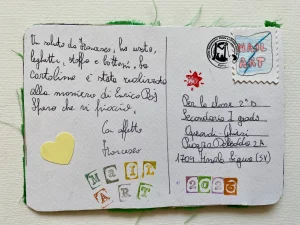 Un saluto da Francesco, ho usato,
laghetti, stoffa e bottoni, la
cartolina è stata realizzata
alla maniera di Enrico Baj
Spero che vi piaccia,
Con affetto
Francesco
MAIL
ART
MAIL
ART
Per la classe 2°D
Secondaria I grado
Piazza
2A
2023